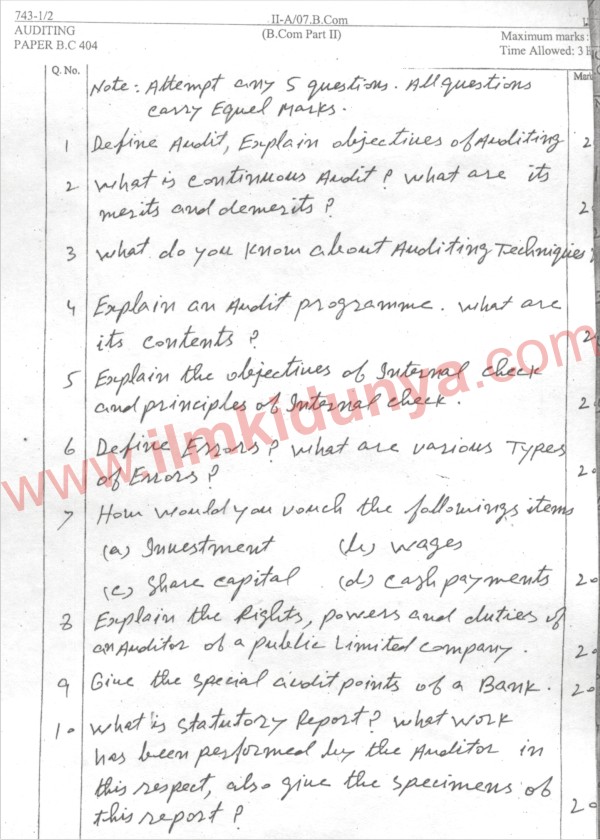 743-1/2
II-A/07.B.Com
AUDITING
(B.Com Part II)
Maximum marks:
PAPER B.C 404
Time Allowed: 3
Q. No.
Note: Attempt any 5 questions. All questions
carry Equel Marks.
1 Define Audit, Explain objectives of Auditing 2
2 What is continuous Audit? What are its
merits and demerits? 20
3 What do you know about Auditing Techniques
4 Explain an Audit programme. What are
its contents? 20
5 Explain the objectives of Internal check
and principles of Internal check. 20
6 Define Errors? What are various Types
of Errors? 20
7 How would you vouch the followings items
(a) Investment (b) wages
(c) Share capital (d) cash payments 20
8 Explain the Rights, powers and duties of
an Auditor of a public Limited company. 20
9 Give the special audit points of a Bank. 20
10 What is Statutory Report? What work
has been performed by the Auditor in
this respect, also give the specimens of
this report? 20
www.ilmkidunya.com